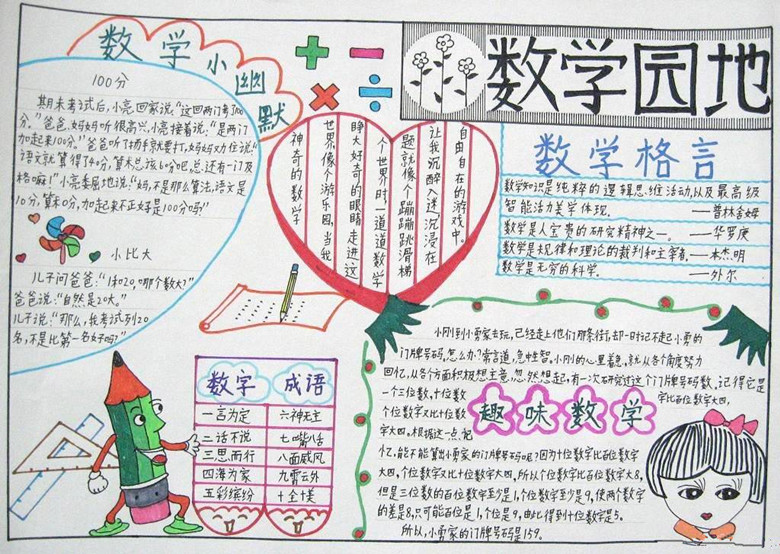 数学小幽默
100分
期末考试后,小亮回家说:“这回两门考100
分。”爸爸、妈妈听很高兴,小亮接着说:“是两门
加起来100分。”爸爸听了扬手就要打,妈妈劝住说:“
语文就算得了40分,算术总该60分吧,总还有一门及
格嘛!”小亮委屈地说:“妈,不是那么算法,语文是
10分,算术0分,加起来不正好是100分吗?”
小比大
儿子问爸爸:“1和20,哪个数大?”
爸爸说:“自然是20大。”
儿子说:“那么,我考试列20
名,不是比第一名好吗?”
神奇的数学
世界像个游乐园,当我
睁大好奇的眼睛走进这
个世界时,一道道数学
题就像个蹦蹦跳滑梯
让我沉醉入迷沉浸在
自由自在的游戏中。
数学园地
数学格言
数学知识是纯粹的逻辑思维活动,以及最高级
智能活力美学体现。——普林舍姆
数学是人宝贵的研究精神之一。——华罗庚
数学是规律和理论的裁判和主宰者。——本杰明
数学是无穷的科学。——外尔
数字 成语
一言为定 六神无主
二话不说 七嘴八舌
三思而行 八面威风
四海为家 九霄云外
五彩缤纷 十全十美
趣味数学
小刚到小勇家去玩,已经走上他们那条街,却一时记不起小勇的
门牌号码,怎么办?常言道,急中生智。小刚的心里着急,就从各个角度努力
回忆,从各个方面积极想主意,忽然想起,有一次研究过这个门牌号码数,记得它是
一个三位数,十位数字比百位数字大四,
个位数字又比十位数
字大四。根据这一点记
忆,能不能算出小勇家的门牌号码呢?因为十位数字比百位数字
大四,个位数字又比十位数字大四,所以个位数字比百位数字大8,
但是三位数的百位数字至少是1,个位数字至少是9,使两个数字
的差是8,只可能百位是1,个位是9,由此得到十位数字是5。
所以,小勇家的门牌号码是159。